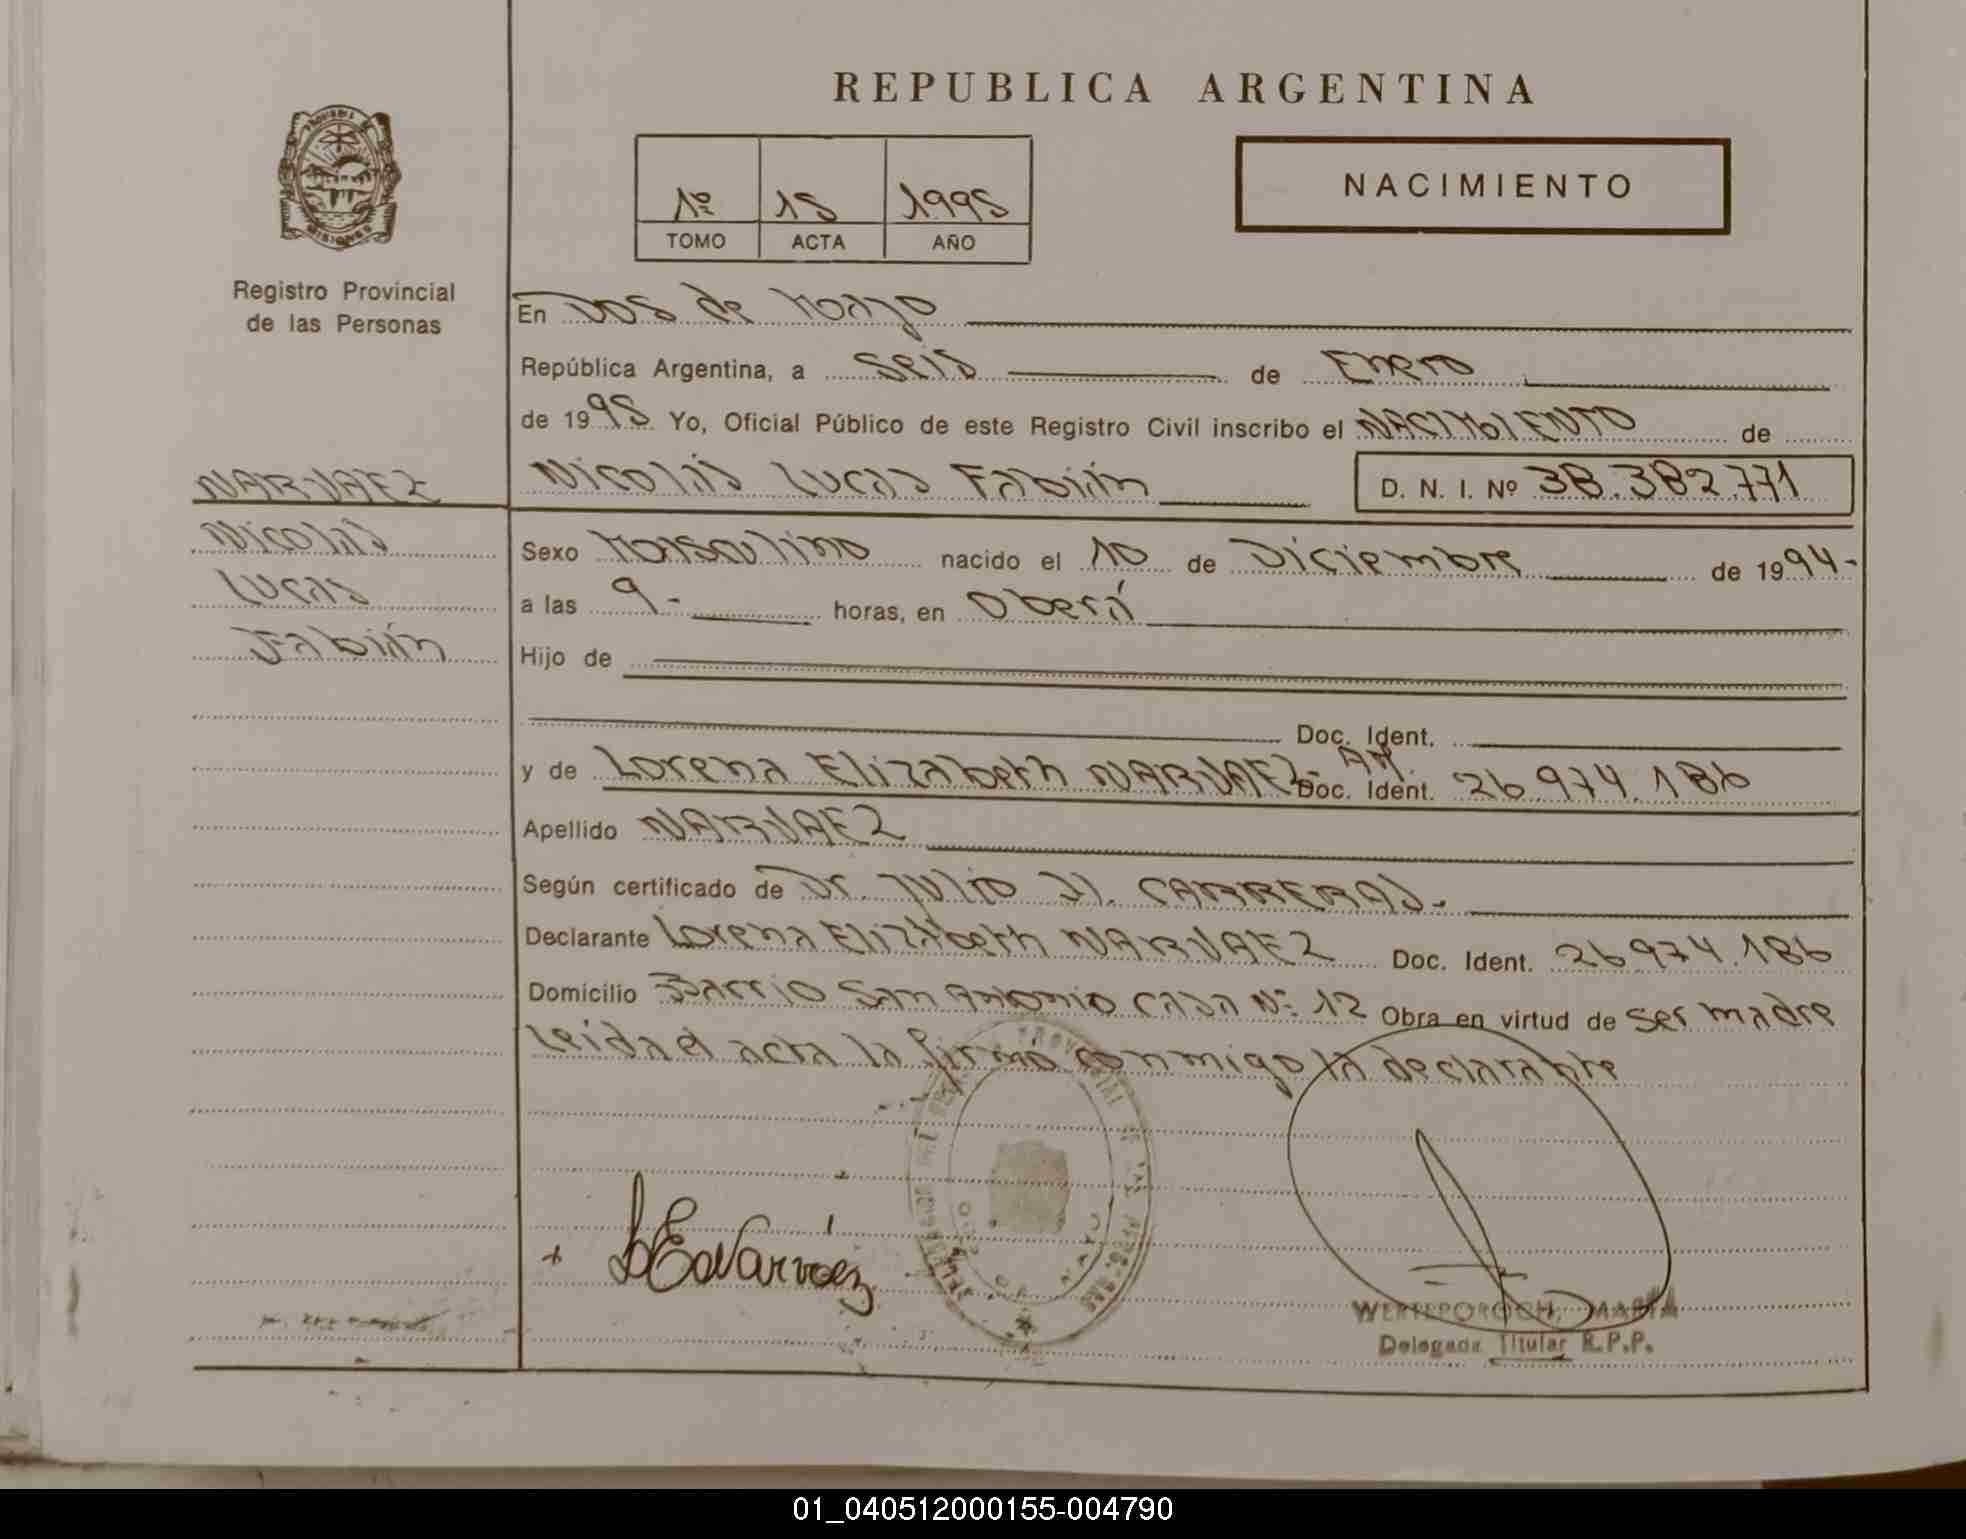 REPUBLICA ARGENTINA
NACIMIENTO
1º 15 1995
TOMO ACTA AÑO
Registro Provincial
de las Personas
En Dos de Mayo
República Argentina, a seis de Enero
de 1995 Yo, Oficial Público de este Registro Civil inscribo el NACIMIENTO de
NARVAEZ
Nicolás Lucas Fabián D. N. I. Nº 38.382.771
Nicolás
Lucas
Fabián
Sexo Masculino nacido el 10 de Diciembre de 1994-
a las 9- horas, en Oberá
Hijo de
Doc. Ident.
y de Lorena Elizabeth NARVAEZ- Doc. Ident. 26.974.186
Apellido NARVAEZ
Según certificado de Dr. Julio H. CARRERAS.
Declarante Lorena Elizabeth NARVAEZ Doc. Ident. 26.974.186
Domicilio Barrio San Antonio casa Nº 12 Obra en virtud de ser madre
leida el acta la firma conmigo la declarante
L E Narváez
WERTEPOROCH, MARTA
Delegada Titular R.P.P.
01_040512000155-004790